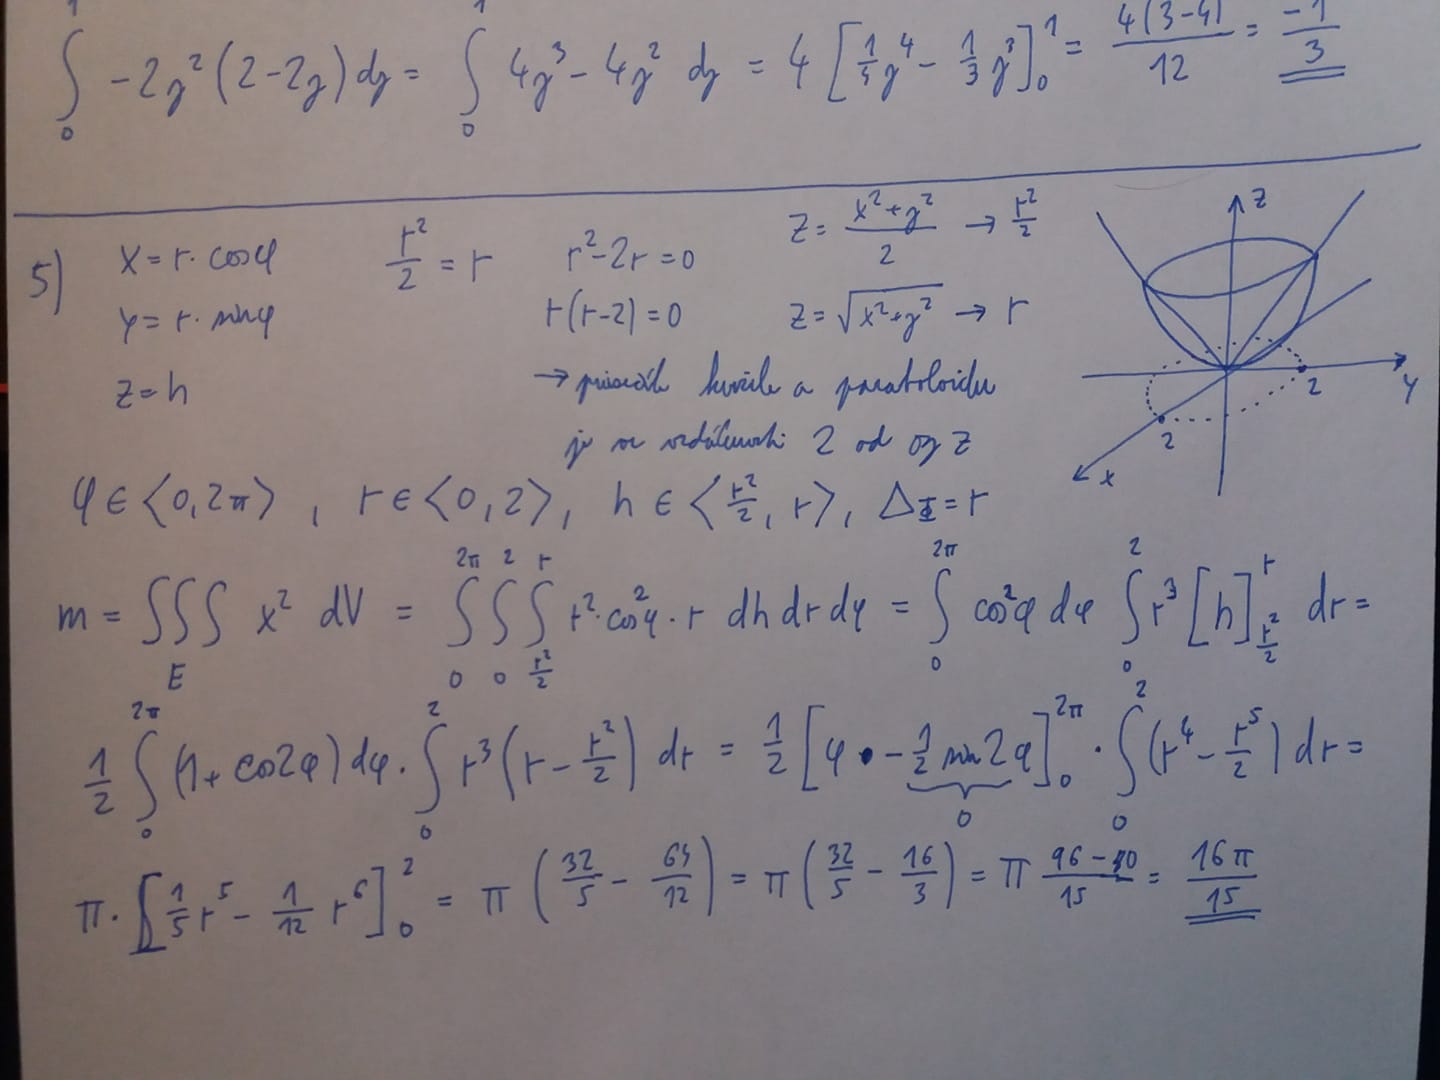 ∫₀¹ -2y²(2-2y)dy = ∫₀¹ 4y³-4y² dy = 4[1/4 y⁴ - 1/3 y³]₀¹ = 4(3-4)/12 = -1/3
5) x = r·cosφ r²/2 = r r²-2r=0 z = (x²+y²)/2 → r²/2
y = r·sinφ r(r-2)=0 z = √(x²+y²) → r
z = h → průsečík kužele a paraboloidu
je ve vzdálenosti 2 od osy z
z
y
2
2
x
φ∈⟨0,2π⟩, r∈⟨0,2⟩, h∈⟨r²/2, r⟩, Δ_Φ=r
m = ∫∫∫_E x² dV = ∫₀^2π ∫₀² ∫_{r²/2}^r r²·cos²φ·r dh dr dφ = ∫₀^2π cos²φ dφ ∫₀² r³ [h]_{r²/2}^r dr =
1/2 ∫₀^2π (1+cos2φ)dφ · ∫₀² r³(r - r²/2) dr = 1/2 [φ · - 1/2 sin2φ]₀^2π · ∫₀² (r⁴ - r⁵/2) dr =
0
π·[1/5 r⁵ - 1/12 r⁶]₀² = π(32/5 - 64/12) = π(32/5 - 16/3) = π (96-80)/15 = 16π/15